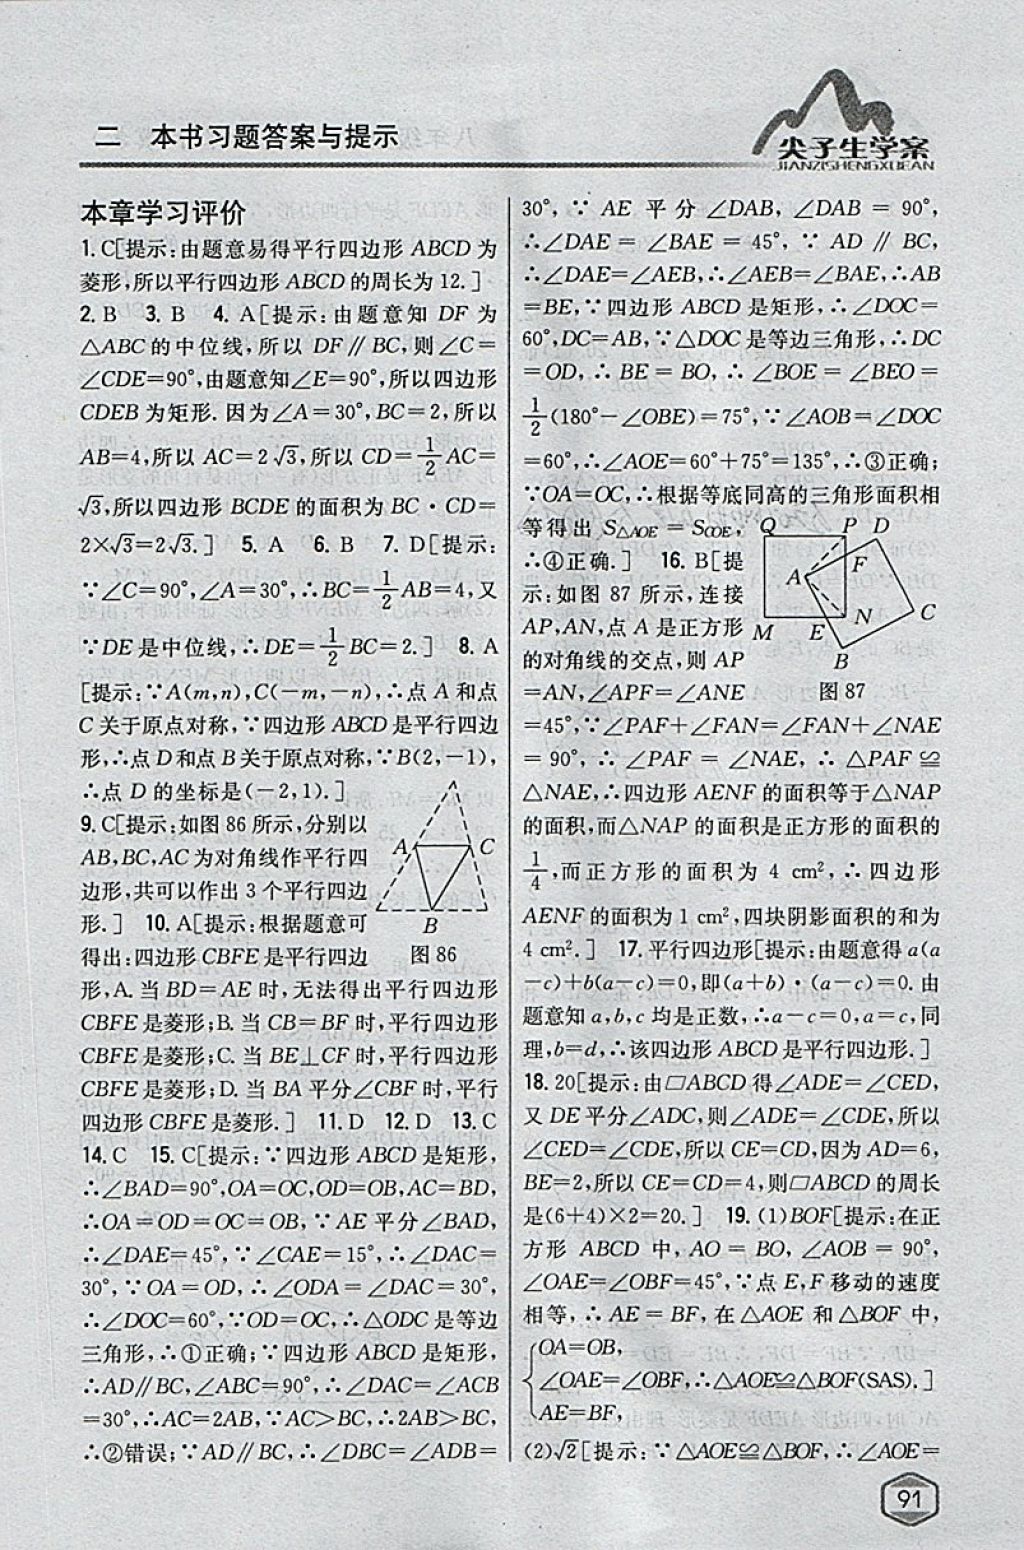 二　本书习题答案与提示
尖子生学案
JIANZISHENGXUEAN
本章学习评价
1. C[提示:由题意易得平行四边形 ABCD 为
菱形,所以平行四边形 ABCD 的周长为 12. ]
2. B　3. B　4. A[提示:由题意知 DF 为
△ABC 的中位线,所以 DF∥BC,则∠C=
∠CDE=90°,由题意知∠E=90°,所以四边形
CDEB 为矩形. 因为∠A=30°,BC=2,所以
AB=4,所以 AC=2√3,所以 CD=1/2 AC=
√3,所以四边形 BCDE 的面积为 BC·CD=
2×√3=2√3. ]　5. A　6. B　7. D[提示:
∵∠C=90°,∠A=30°,∴BC=1/2 AB=4,又
∵DE 是中位线,∴DE=1/2 BC=2. ]　8. A
[提示:∵A(m,n),C(-m,-n),∴点 A 和点
C 关于原点对称,∵四边形 ABCD 是平行四边
形,∴点 D 和点 B 关于原点对称,∵B(2,-1),
∴点 D 的坐标是(-2,1). ]
9. C[提示:如图 86 所示,分别以
AB,BC,AC 为对角线作平行四
边形,共可以作出 3 个平行四边
形. ]　10. A[提示:根据题意可
得出:四边形 CBFE 是平行四边
A
C
B
图 86
形,A. 当 BD=AE 时,无法得出平行四边形
CBFE 是菱形;B. 当 CB=BF 时,平行四边形
CBFE 是菱形;C. 当 BE⊥CF 时,平行四边形
CBFE 是菱形;D. 当 BA 平分∠CBF 时,平行
四边形 CBFE 是菱形. ]　11. D　12. D　13. C
14. C　15. C[提示:∵四边形 ABCD 是矩形,
∴∠BAD=90°,OA=OC,OD=OB,AC=BD,
∴OA=OD=OC=OB,∵AE 平分∠BAD,
∴∠DAE=45°,∵∠CAE=15°,∴∠DAC=
30°,∵OA=OD,∴∠ODA=∠DAC=30°,
∴∠DOC=60°,∵OD=OC,∴△ODC 是等边
三角形,∴①正确;∵四边形 ABCD 是矩形,
∴AD∥BC,∠ABC=90°,∴∠DAC=∠ACB
=30°,∴AC=2AB,∵AC>BC,∴2AB>BC,
∴②错误;∵AD∥BC,∴∠DBC=∠ADB=
30°,∵AE 平分∠DAB,∠DAB=90°,
∴∠DAE=∠BAE=45°,∵AD∥BC,
∴∠DAE=∠AEB,∴∠AEB=∠BAE,∴AB
=BE,∵四边形 ABCD 是矩形,∴∠DOC=
60°,DC=AB,∵△DOC 是等边三角形,∴DC
=OD,∴BE=BO,∴∠BOE=∠BEO=
1/2(180°-∠OBE)=75°,∵∠AOB=∠DOC
=60°,∴∠AOE=60°+75°=135°,∴③正确;
∵OA=OC,∴根据等底同高的三角形面积相
等得出 S△AOE=SCOE,
∴④正确. ]　16. B[提
示:如图 87 所示,连接
AP,AN,点 A 是正方形
的对角线的交点,则 AP
=AN,∠APF=∠ANE
Q
P
D
A
F
N
C
M
E
B
图 87
=45°,∵∠PAF+∠FAN=∠FAN+∠NAE
=90°,∴∠PAF=∠NAE,∴△PAF≌
△NAE,∴四边形 AENF 的面积等于△NAP
的面积,而△NAP 的面积是正方形的面积的
1/4,而正方形的面积为 4 cm²,∴四边形
AENF 的面积为 1 cm²,四块阴影面积的和为
4 cm². ]　17. 平行四边形[提示:由题意得 a(a
-c)+b(a-c)=0,即(a+b)·(a-c)=0. 由
题意知 a,b,c 均是正数,∴a-c=0,a=c,同
理,b=d,∴该四边形 ABCD 是平行四边形. ]
18. 20[提示:由▱ABCD 得∠ADE=∠CED,
又 DE 平分∠ADC,则∠ADE=∠CDE,所以
∠CED=∠CDE,所以 CE=CD,因为 AD=6,
BE=2,所以 CE=CD=4,则▱ABCD 的周长
是(6+4)×2=20. ]　19. (1)BOF[提示:在正
方形 ABCD 中,AO=BO,∠AOB=90°,
∠OAE=∠OBF=45°,∵点 E,F 移动的速度
相等,∴AE=BF,在△AOE 和△BOF 中,
OA=OB,
∠OAE=∠OBF,∴△AOE≌△BOF(SAS). ]
AE=BF,
(2)√2[提示:∵△AOE≌△BOF,∴∠AOE=
91